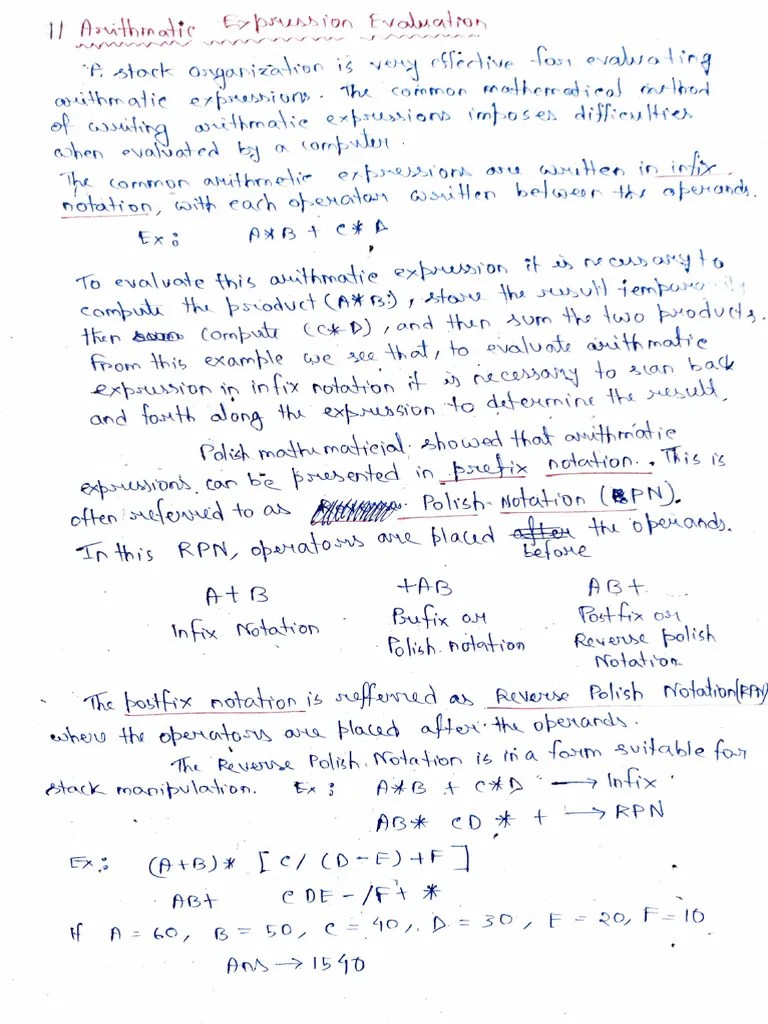 11 Arithmatic Expression Evaluation
A stack organization is very effective for evaluating
arithmatic expressions. The common mathematical method
of writing arithmatic expressions imposes difficulties
when evaluated by a computer.
The common arithmetic expressions are written in infix
notation, with each operator written between the operands.
Ex: A*B + C*D
To evaluate this arithmatic expression it is necessary to
compute the product (A*B), store the result temporarily
then compute (C*D), and then sum the two products.
From this example we see that, to evaluate arithmatic
expression in infix notation it is necessary to scan back
and forth along the expression to determine the result.
Polish mathematicial showed that arithmatic
expressions can be presented in prefix notation. This is
often referred to as Polish Notation (PN).
In this RPN, operators are placed after the operands.
before
A+B +AB AB+
Infix Notation Prefix or Postfix or
Polish notation Reverse polish
Notation
The postfix notation is refferred as Reverse Polish Notation(RPN)
where the operators are placed after the operands.
The Reverse Polish Notation is in a form suitable for
stack manipulation. Ex: A*B + C*D → Infix
AB* CD * + → RPN
Ex: (A+B)* [C/ (D-E)+F]
AB+ CDE-/F+ *
If A = 60, B = 50, C = 40, D = 30, E = 20, F = 10
Ans → 1540